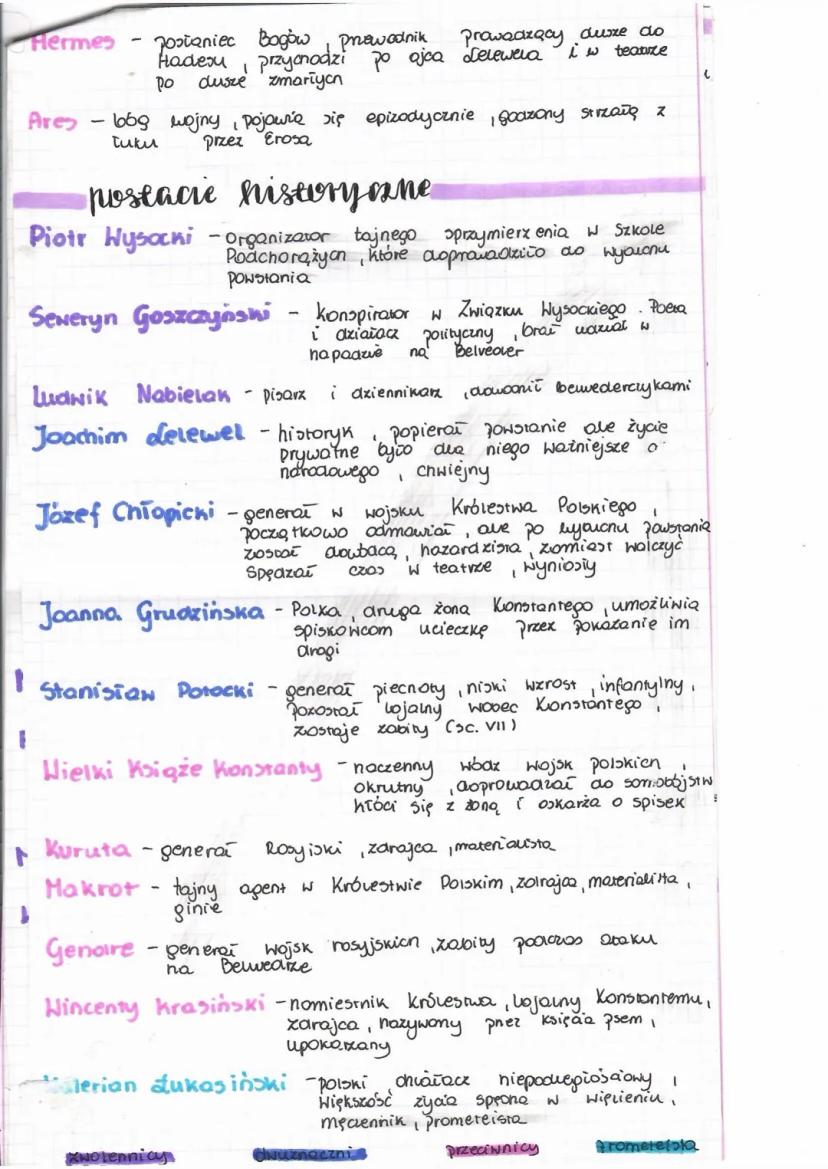 Hermes - posłaniec Bogów, przewodnik prowadzący dusze do
Hadesu, przychodzi po ojca Lelewela i w teatrze
po dusze zmarłych
Ares - bóg wojny, pojawia się epizodycznie, godzony strzałą z
łuku przez Erosa
postacie historyczne
Piotr Wysocki - organizator tajnego sprzymierzenia w Szkole
Podchorążych, które doprowadziło do wybuchu
powstania
Seweryn Goszczyński - konspirator w Związku Wysockiego. Poeta
i działacz polityczny, brał udział w
napadzie na Belweder
Ludwik Nabielak - pisarz i dziennikarz, dowodził belwederczykami
Joachim Lelewel - historyk, popierał powstanie ale życie
prywatne było dla niego ważniejsze o
narodowego, chwiejny
Józef Chłopicki - generał w wojsku Królestwa Polskiego,
początkowo odmawiał, ale po wybuchu powstania
został dowódcą, hazardzista, zamiast walczyć
spędzał czas w teatrze, wyniosły
Joanna Grudzińska - Polka, druga żona Konstantego, umożliwia
spiskowcom ucieczkę przez pokazanie im
drogi
Stanisław Potocki - generał piechoty, niski wzrost, infantylny,
pozostał lojalny wobec Konstantego,
zostaje zabity (sc. VII)
Wielki Książe Konstanty - naczelny wódz wojsk polskich,
okrutny, doprowadzał do samobójstw
kłóci się z żoną i oskarża o spisek
Kuruta - generał Rosyjski, zdrajca, materialista
Makrot - tajny agent w Królestwie Polskim, zdrajca, materialista,
ginie
Genoire - generał wojsk rosyjskich, zabity podczas ataku
na Belwedrze
Wincenty Krasiński - namiestnik Królestwa, lojalny Konstantemu,
zdrajca, nazywany przez księcia psem,
upokarzany
Walerian Łukasiński - polski działacz niepodległościowy,
większość życia spędza w więzieniu,
męczennik, prometeista
zwolennicy dwuznaczni przeciwnicy prometeista